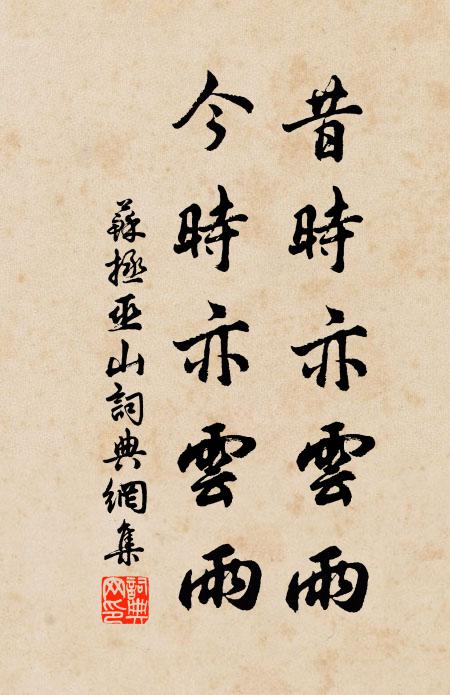 昔時亦雲雨
今時亦雲雨
蘇拯巫山詞典網集
詞典網印